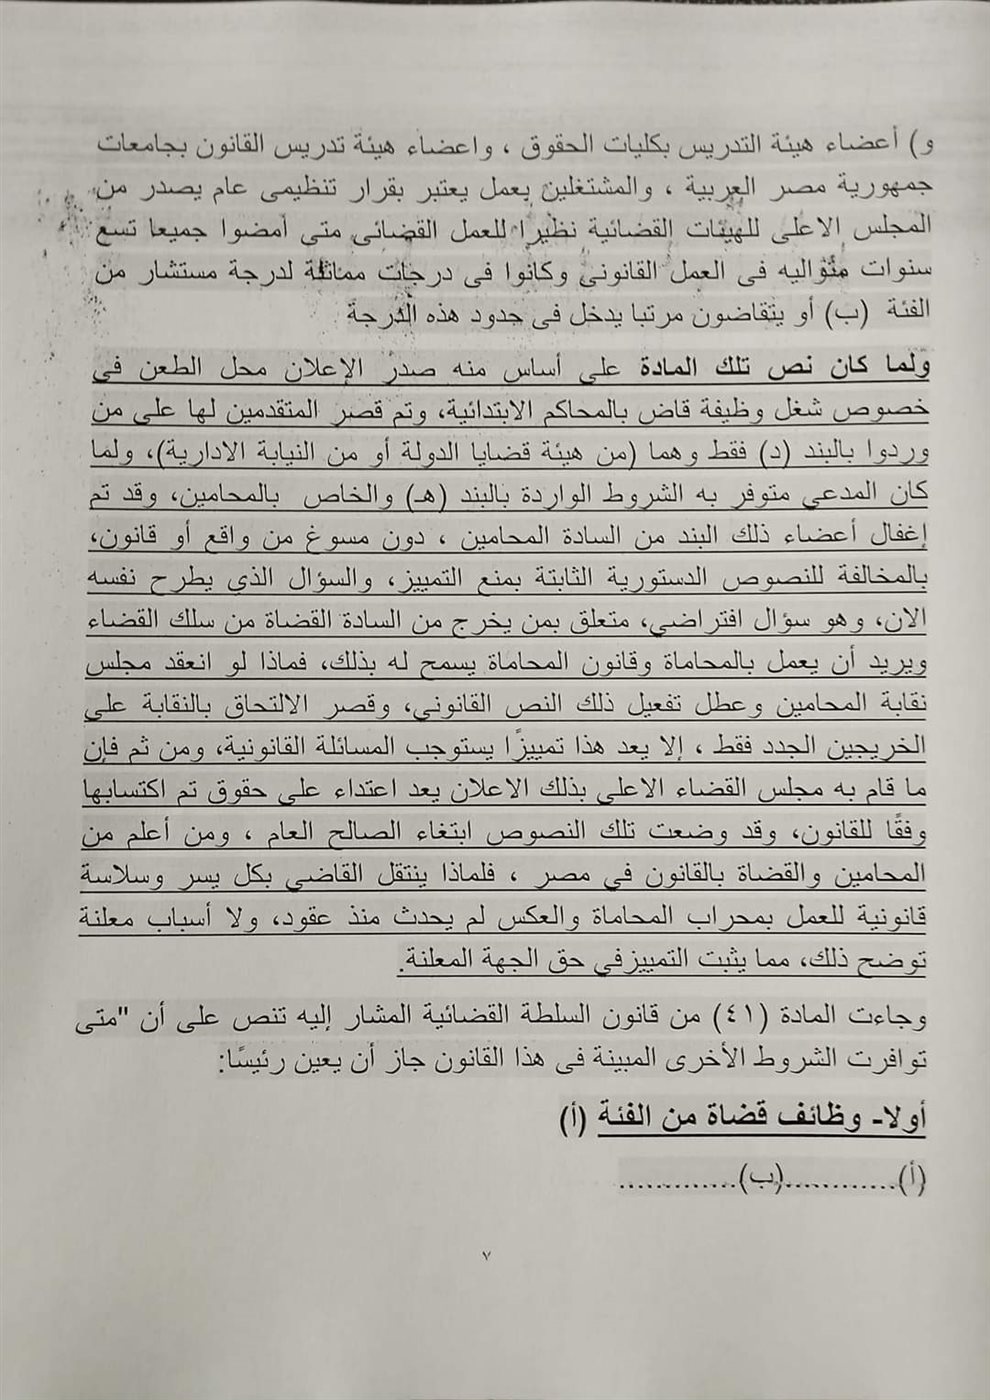 و) أعضاء هيئة التدريس بكليات الحقوق ، واعضاء هيئة تدريس القانون بجامعات
جمهورية مصر العربية ، والمشتغلين بعمل يعتبر بقرار تنظيمى عام يصدر من
المجلس الاعلى للهيئات القضائية نظيرا للعمل القضائى متى أمضوا جميعا تسع
سنوات متواليه فى العمل القانونى وكانوا فى درجات مماثلة لدرجة مستشار من
الفئة (ب) أو يتقاضون مرتبا يدخل فى حدود هذه الدرجة
ولما كان نص تلك المادة على أساس منه صدر الإعلان محل الطعن في
خصوص شغل وظيفة قاض بالمحاكم الابتدائية، وتم قصر المتقدمين لها على من
وردوا بالبند (د) فقط وهما (من هيئة قضايا الدولة أو من النيابة الادارية)، ولما
كان المدعي متوفر به الشروط الواردة بالبند (هـ) والخاص بالمحامين، وقد تم
إغفال أعضاء ذلك البند من السادة المحامين ، دون مسوغ من واقع أو قانون،
بالمخالفة للنصوص الدستورية الثابتة بمنع التمييز، والسؤال الذي يطرح نفسه
الان، وهو سؤال افتراضي، متعلق بمن يخرج من السادة القضاة من سلك القضاء
ويريد أن يعمل بالمحاماة وقانون المحاماة يسمح له بذلك، فماذا لو انعقد مجلس
نقابة المحامين وعطل تفعيل ذلك النص القانوني، وقصر الالتحاق بالنقابة على
الخريجين الجدد فقط ، إلا يعد هذا تمييزًا يستوجب المسائلة القانونية، ومن ثم فإن
ما قام به مجلس القضاء الاعلى بذلك الاعلان يعد اعتداء على حقوق تم اكتسابها
وفقًا للقانون، وقد وضعت تلك النصوص ابتغاء الصالح العام ، ومن أعلم من
المحامين والقضاة بالقانون في مصر ، فلماذا ينتقل القاضي بكل يسر وسلاسة
قانونية للعمل بمحراب المحاماة والعكس لم يحدث منذ عقود، ولا أسباب معلنة
توضح ذلك، مما يثبت التمييزفي حق الجهة المعلنة.
وجاءت المادة (٤١) من قانون السلطة القضائية المشار إليه تنص على أن "متى
توافرت الشروط الأخرى المبينة فى هذا القانون جاز أن يعين رئيسًا:
أولا- وظائف قضاة من الفئة (أ)
(أ)............(ب).............
٧